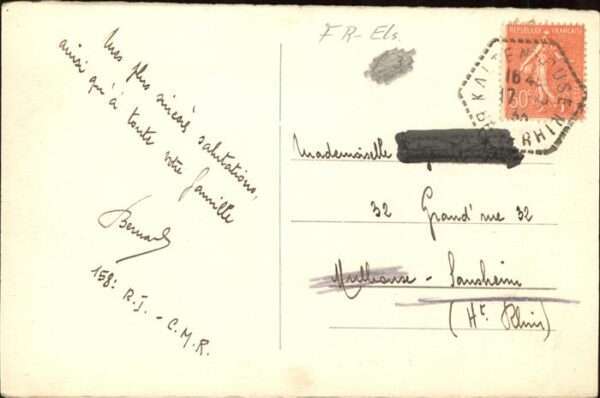 FR-Els.
RÉPUBLIQUE FRANÇAISE
50c
KALTENHOUSE
16
RHIN
Mes plus sincères salutations,
ainsi qu'à toute votre famille
Bernard
158: R.I. - C.M.R.
Mademoiselle
32 Grand' rue 32
Mulhouse - Sausheim
(Ht. Rhin)